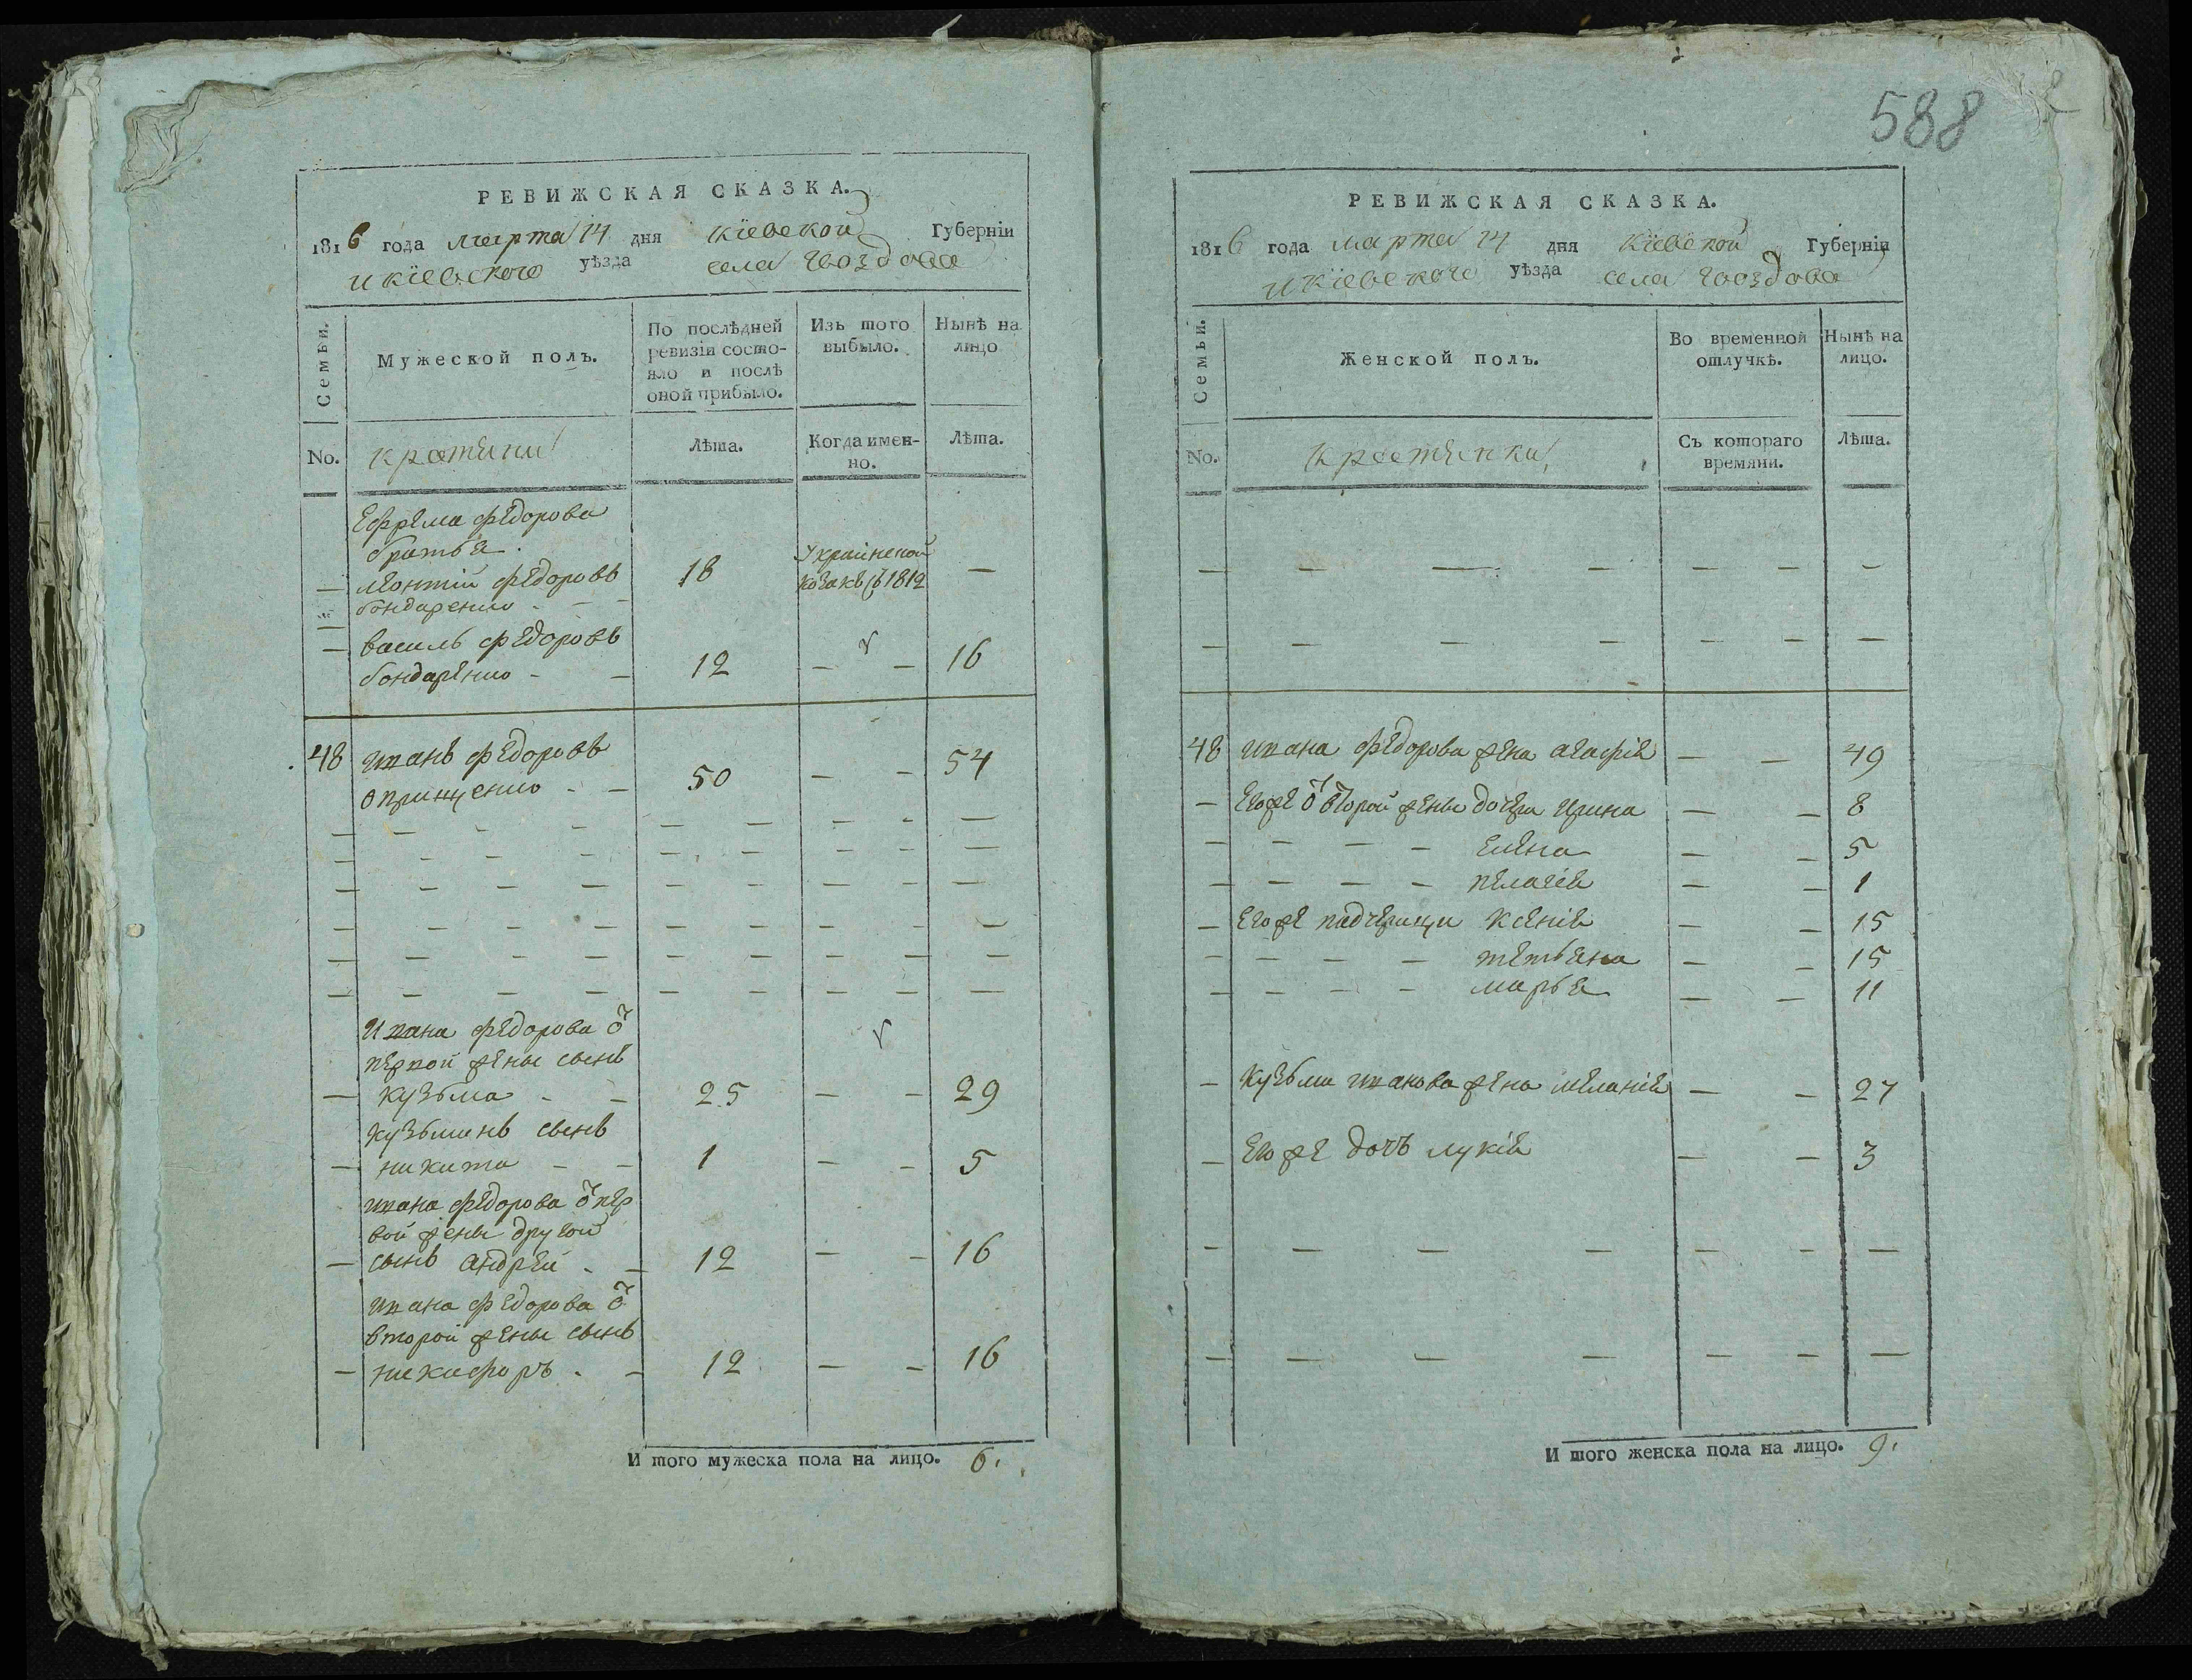 588
РЕВИЖСКАЯ СКАЗКА.
1816 года марта 14 дня Кїевской Губерніи
и кїевского уѣзда села Гвоздова
Семьи.
Мужеской полъ.
По послѣдней ревизіи состо-
яло и послѣ
оной прибыло.
Изъ того
выбыло.
Нынѣ на
лицо
No.
крестяни
Лѣта.
Когда имен-
но.
Лѣта.
Ефрема Федорова
братья.
— Леонтій Федоровъ 18 Украинской козакъ съ 1812 —
бондаренко - —
— василь Федоровъ
бондаренко - — 12 — — 16
48 иванъ Федоровъ
онрищенко - — 50 — — 54
Ивана Федорова от
первой жены сынъ
— кузьма - — 25 — — 29
Кузьминъ сынъ
— никита — — 1 — — 5
ивана Федорова от пер
вой жены другой
— сынъ андрей - — 12 — — 16
ивана Федорова от
второй жены сынъ
— никифоръ - — 12 — — 16
И того мужеска пола на лицо. 6.
РЕВИЖСКАЯ СКАЗКА.
1816 года марта 14 дня Кїевской Губерніи
и кїевского уѣзда села Гвоздова
Семьи.
Женской полъ.
Во временной
отлучкѣ.
Нынѣ на
лицо.
No.
крестянки
Съ котораго
времяни.
Лѣта.
48 ивана Федорова жена агафія — — 49
— Егоже от второй жены дочери Ирина — — 8
— — — — Елена — — 5
— — — — пелагія — — 1
— Егоже падчерици Ксенія — — 15
— — — — татьяна — — 15
— — — — марья — — 11
— Кузьмы иванова жена меланія — — 27
— Егоже дочъ лукія — — 3
И того женска пола на лицо. 9.